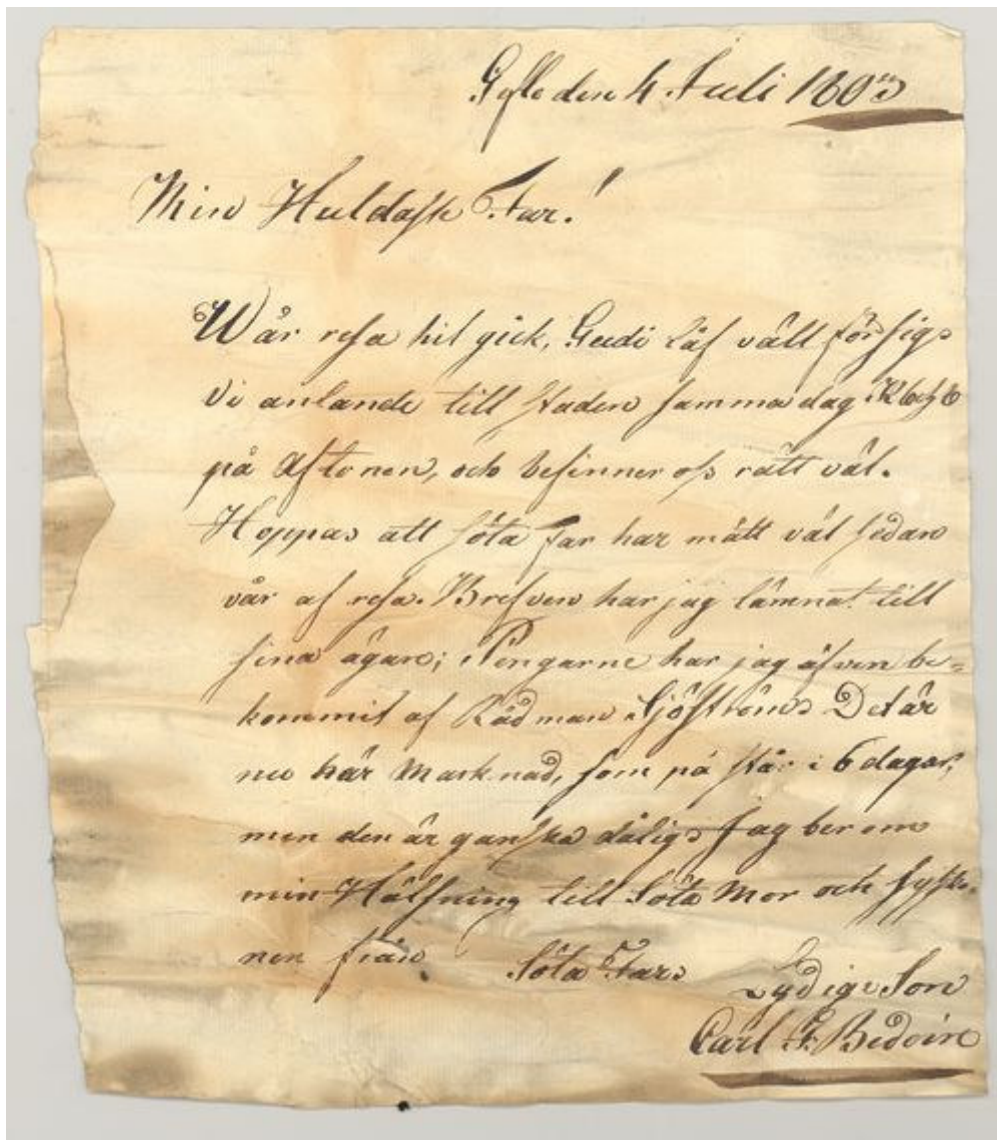 Gefle den 4 Juli 1803
Min Huldaste Far!
Wår resa hit gick, Gudi låf vält för sig,
vi anlände till staden samma dag Kl 6
på Aftonen, och befinner oss rätt väl.
Hoppas att söta Far har mått väl sedan
vår af resa. Brefven har jag lämnat till
sina ägare; Pengarne har jag äfven be=
kommit af Rådman Sjöström, Det är
nu här Marknad, som på står i 6 dagar,
men den är ganska dålig, Jag ber om
min Hälsning till Söta Mor och sysko=
nen från Söta Fars
Lydige Son
Carl F. Bedoire